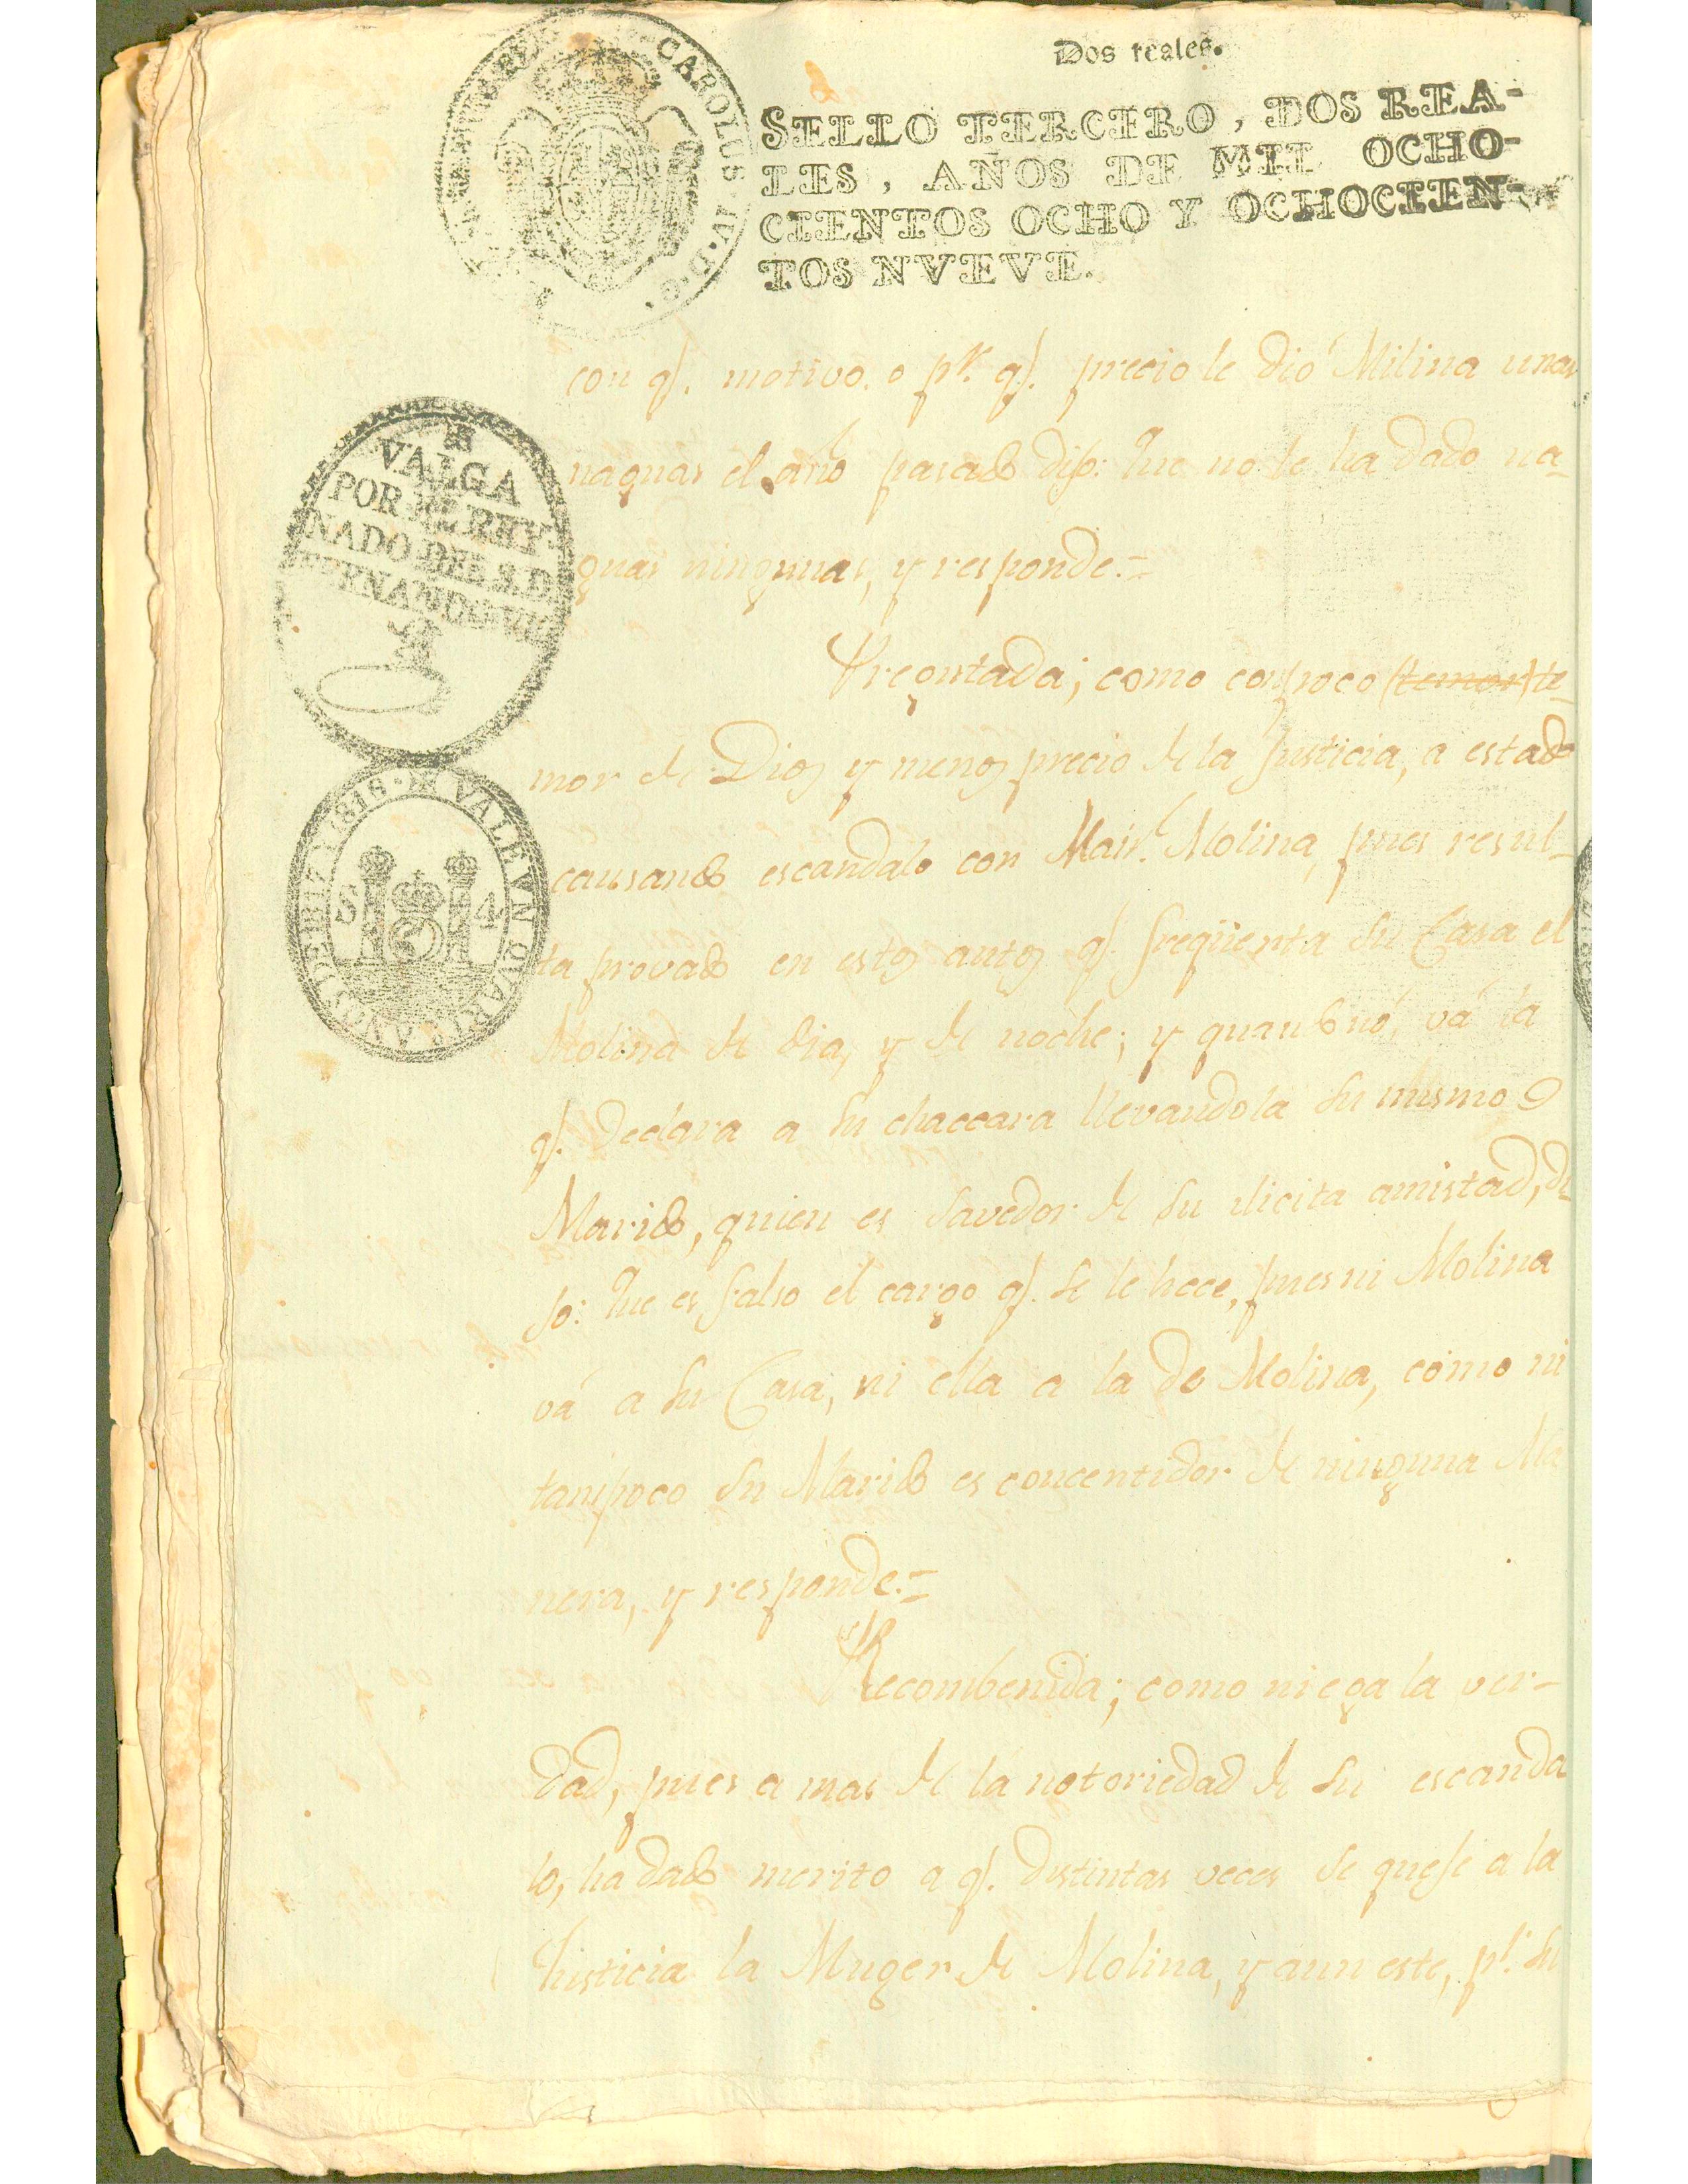 Dos reales.
SELLO TERCERO, DOS REA-
LES, AÑOS DE MIL OCHO-
CIENTOS OCHO Y OCHOCIEN-
TOS NVEVE.
CAROLUS IV D G
VALGA
POR EL REY
NADO DEL S.D.
FERNANDO VII
VALEVN QVART ANNOS 1818
S 3 4
con q.ͤ motivo. o p.ʳ q.ͤ precio le dió Milina unas
naguas el año pasado Dijo: Que no le ha dado na-
guas ningunas, y responde.=
Pregontada; como con poco (temor) te-
mor de Dios y menos precio de la Justicia, a estado
causando escandalo con Mair.ͦ Molina, pues resul-
ta provado en estos autos q.ͤ freqüenta su Casa el
Molina de dia, y de noche; y quando nó, vá la
q.ͤ declara a su chaccara llevandola su mismo
Marido, quien es savedor de su ilicita amistad, di-
jo: Que es falso el cargo q.ͤ se le hece, pues ni Molina
vá a su Casa, ni ella a la de Molina, como ni
tampoco su Marido es concentidor de ninguna Ma
nera, y responde.=
Recombenida; como niega la ver-
dad, pues a mas de la notoriedad de su escanda
lo, ha dado merito a q.ͤ distintas veces se queje a la
Justicia la Muger de Molina, y aun este, p.ʳ su